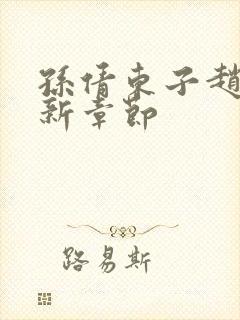 孫倩東子趙
新章節
路易斯